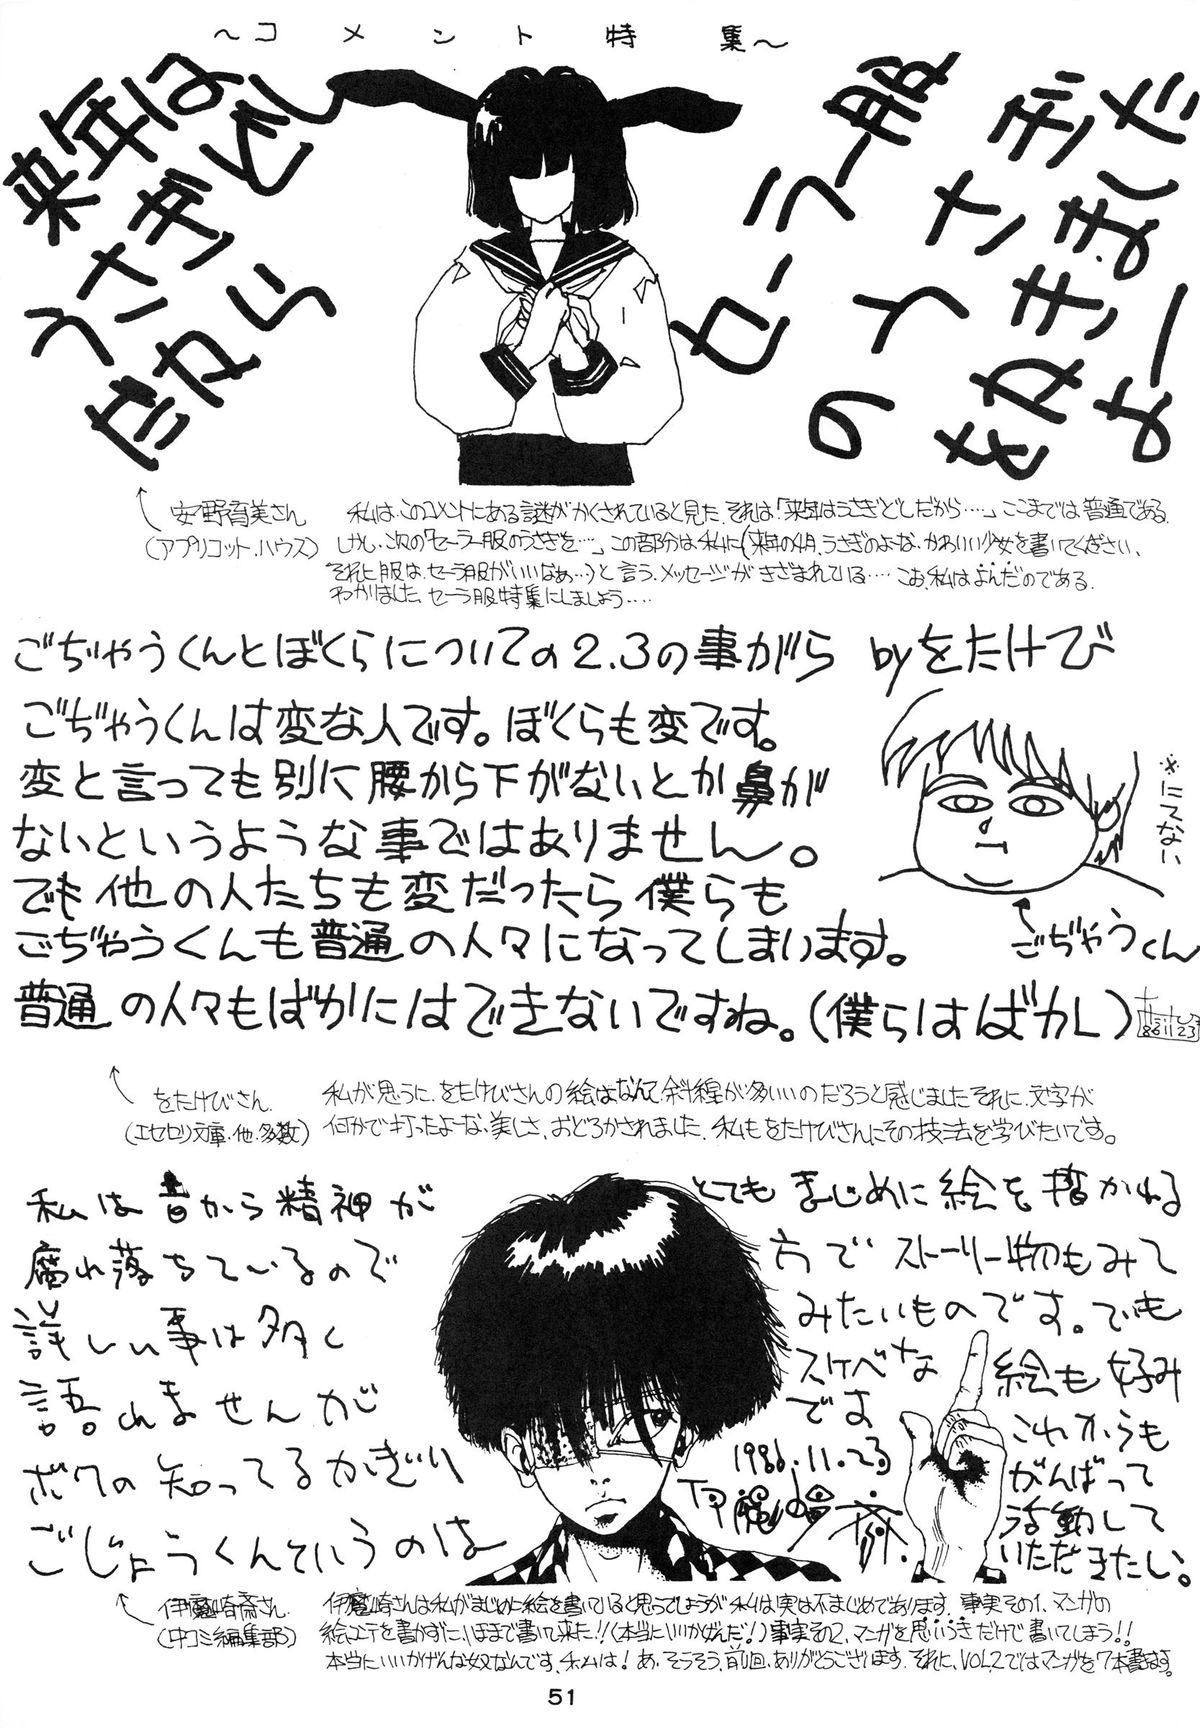 ～コメント特集～
来年は
うさぎどし
だから
セーラー服
のうさぎ
をかきました
よー
安野育美さん
(アプリコット.ハウス)
私は、このコメントにある謎がかくされていると見た.それは.「来年はうさぎどしだから‥‥」ここまでは普通である.
しかし、次の「セーラー服のうさぎを…」この部分は私に(来年の4月、うさぎのよーな、かわいい少女を書いてください、
それに服は、セーラ服がいいなぁ…)と言う、メッセージがきざまれている‥‥こお、私はよんだのである.
わかりました、セーラ服特集にしましょう‥‥
ごぢゃうくんとぼくらについての2.3の事がら byをたけび
ごぢゃうくんは変な人です。ぼくらも変です。
変と言っても別に腰から下がないとか鼻が
ないというような事ではありません。
でも他の人たちも変だったら僕らも
ごぢゃうくんも普通の人々になってしまいます。
普通の人々もばかにはできないですね。(僕らはばかし)
86 11 23
※にてない
ごぢゃうくん
をたけびさん
(エセロリ文庫.他.多数)
私が思うに、をたけびさんの絵はなんて、斜線が多いいのだろうと感じました.それに、文字が
何かで打ったよーな、美しさ、おどろかされました、私もをたけびさんにその技法を学びたいです。
私は昔から精神が
腐れ落ちているので
詳しい事は多く
語れませんが
ボクの知ってるかぎり
ごじょうくんていうのは
とてもまじめに絵を描かれる
方でストーリー物もみて
みたいものです。でも
スケベな絵も好み
です
これからも
がんばって
活動して
いただきたい。
1986.11.23
伊魔崎斎.
伊魔崎斎さん.
(中コミ編集部)
伊魔崎さんは私がまじめに絵を書いていると思うでしょうが私は実は不まじめであります、事実その1、マンガの
絵コンテを書かずに、いままで書いて来た!!(本当にいいかげんだ!)事実その2、マンガを思いつきだけで書いてしまう!!
本当にいいかげんな奴なんです、私は!あ、そうそう、前回、ありがとうございます.それに、VOL.2ではマンガを7本書きます。
51